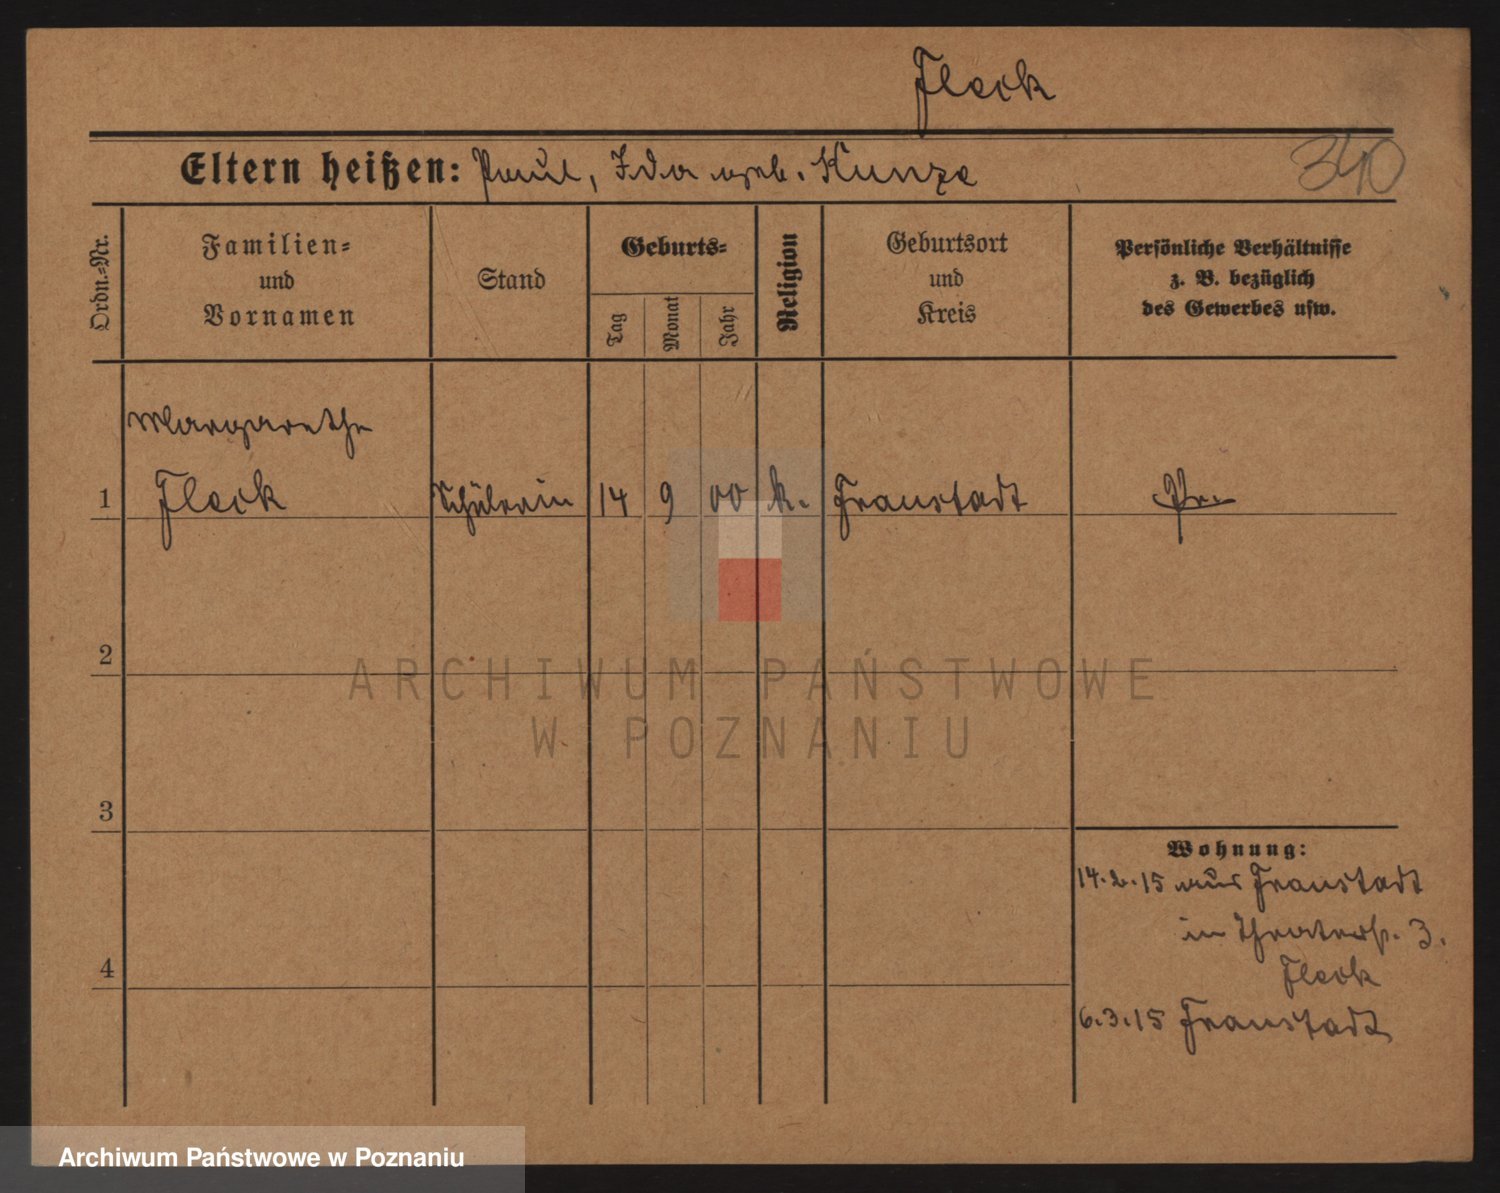 Fleck
Eltern heißen: Paul, Ida geb. Kunze
340
Ordn.=Nr.
Familien=
und
Vornamen
Stand
Geburts=
Tag
Monat
Jahr
Religion
Geburtsort
und
Kreis
Persönliche Verhältnisse
z. B. bezüglich
des Gewerbes usw.
Margarethe
1 Fleck Schülerin 14 9 00 k. Fraustadt Pr.
2
3
4
Wohnung:
14.2.15 aus Fraustadt
in Theaterstr. 3.
Fleck
6.3.15 Fraustadt
ARCHIWUM PAŃSTWOWE
W POZNANIU
Archiwum Państwowe w Poznaniu